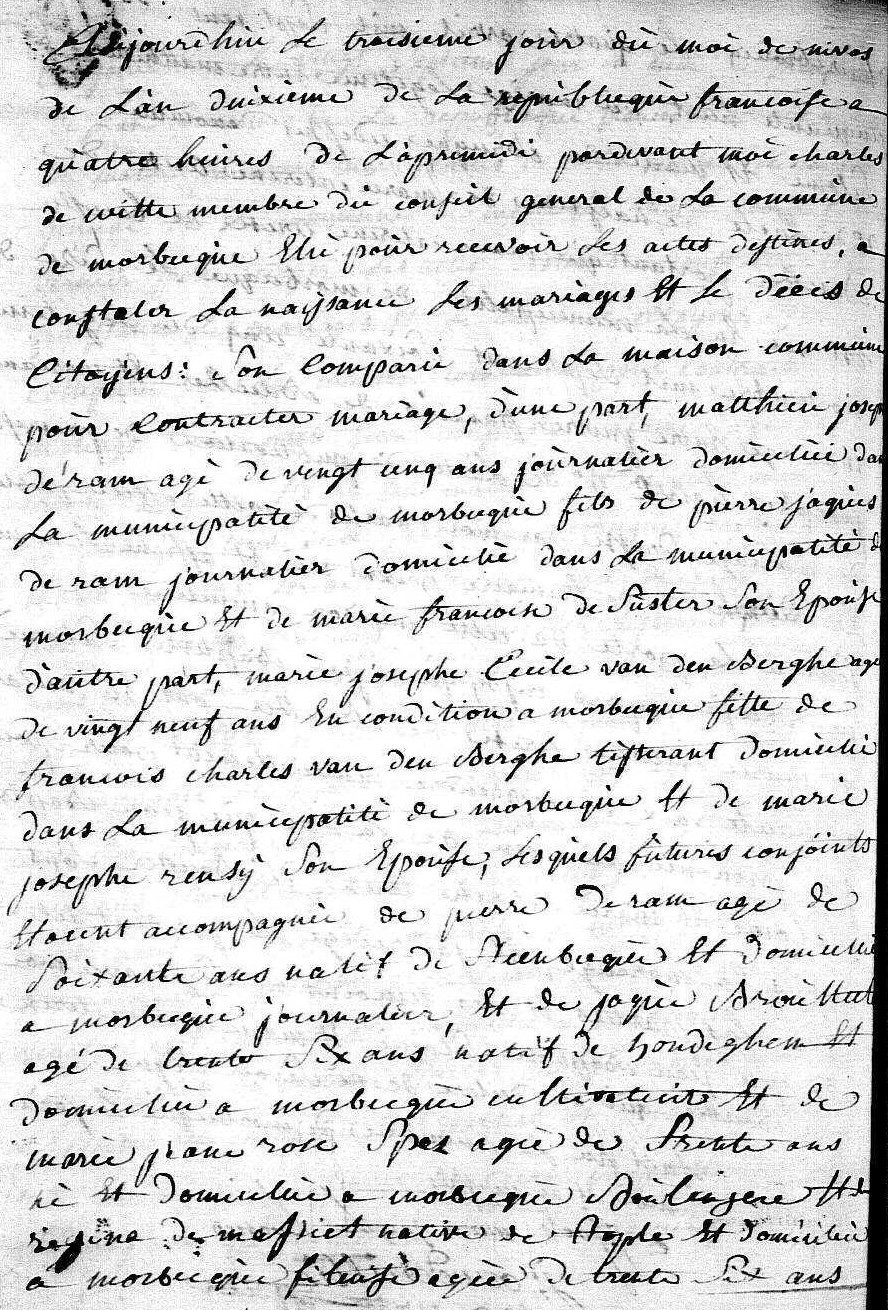 Aujourdhui le troisieme jour du moi de nivos
de Làn duixieme de La republicque francoise a
quatre heures de Làpremidi pardevant moi charles
de witte membre du conseil general de La commune
de morbecque Elu pour recevoir les actes destines, a
constater La naissance les mariages Et le décés de
Citoyens: son Comparu dans La maison commune
pour contracter mariage, dune part, matthieu joseph
de ram agé de vengt cinq ans journalier domicilié dan
La municipalité de morbecque fils de pierre jaques
de ram journalier domicilié dans La municipalité de
morbecque Et de marie francoise de Suster son Epouse
daûtre part, marie josephe Cecile van den Berghe agé
de vingt neuf ans En condition a morbecque fille de
francois charles van den Berghe tisserant domicilié
dans La municipalité de morbecque Et de marie
josephe rensÿ son Epouse, Lesquels futures conjoints
Etoient accompagnié de pierre deram agé de
Soixante ans natif de Steenbecque Et domicilié
a morbecque journalier, Et de jaque
agé de trente Six ans natif de hondeghem Et
domicilié a morbecque cultivateur Et de
marie jeane rose Spex agée de trente ans
né Et domicilié a morbecque Boulengere Et de
regina de massiet native de Staple Et domicilié
a morbecque fileuse agée de trente Six ans